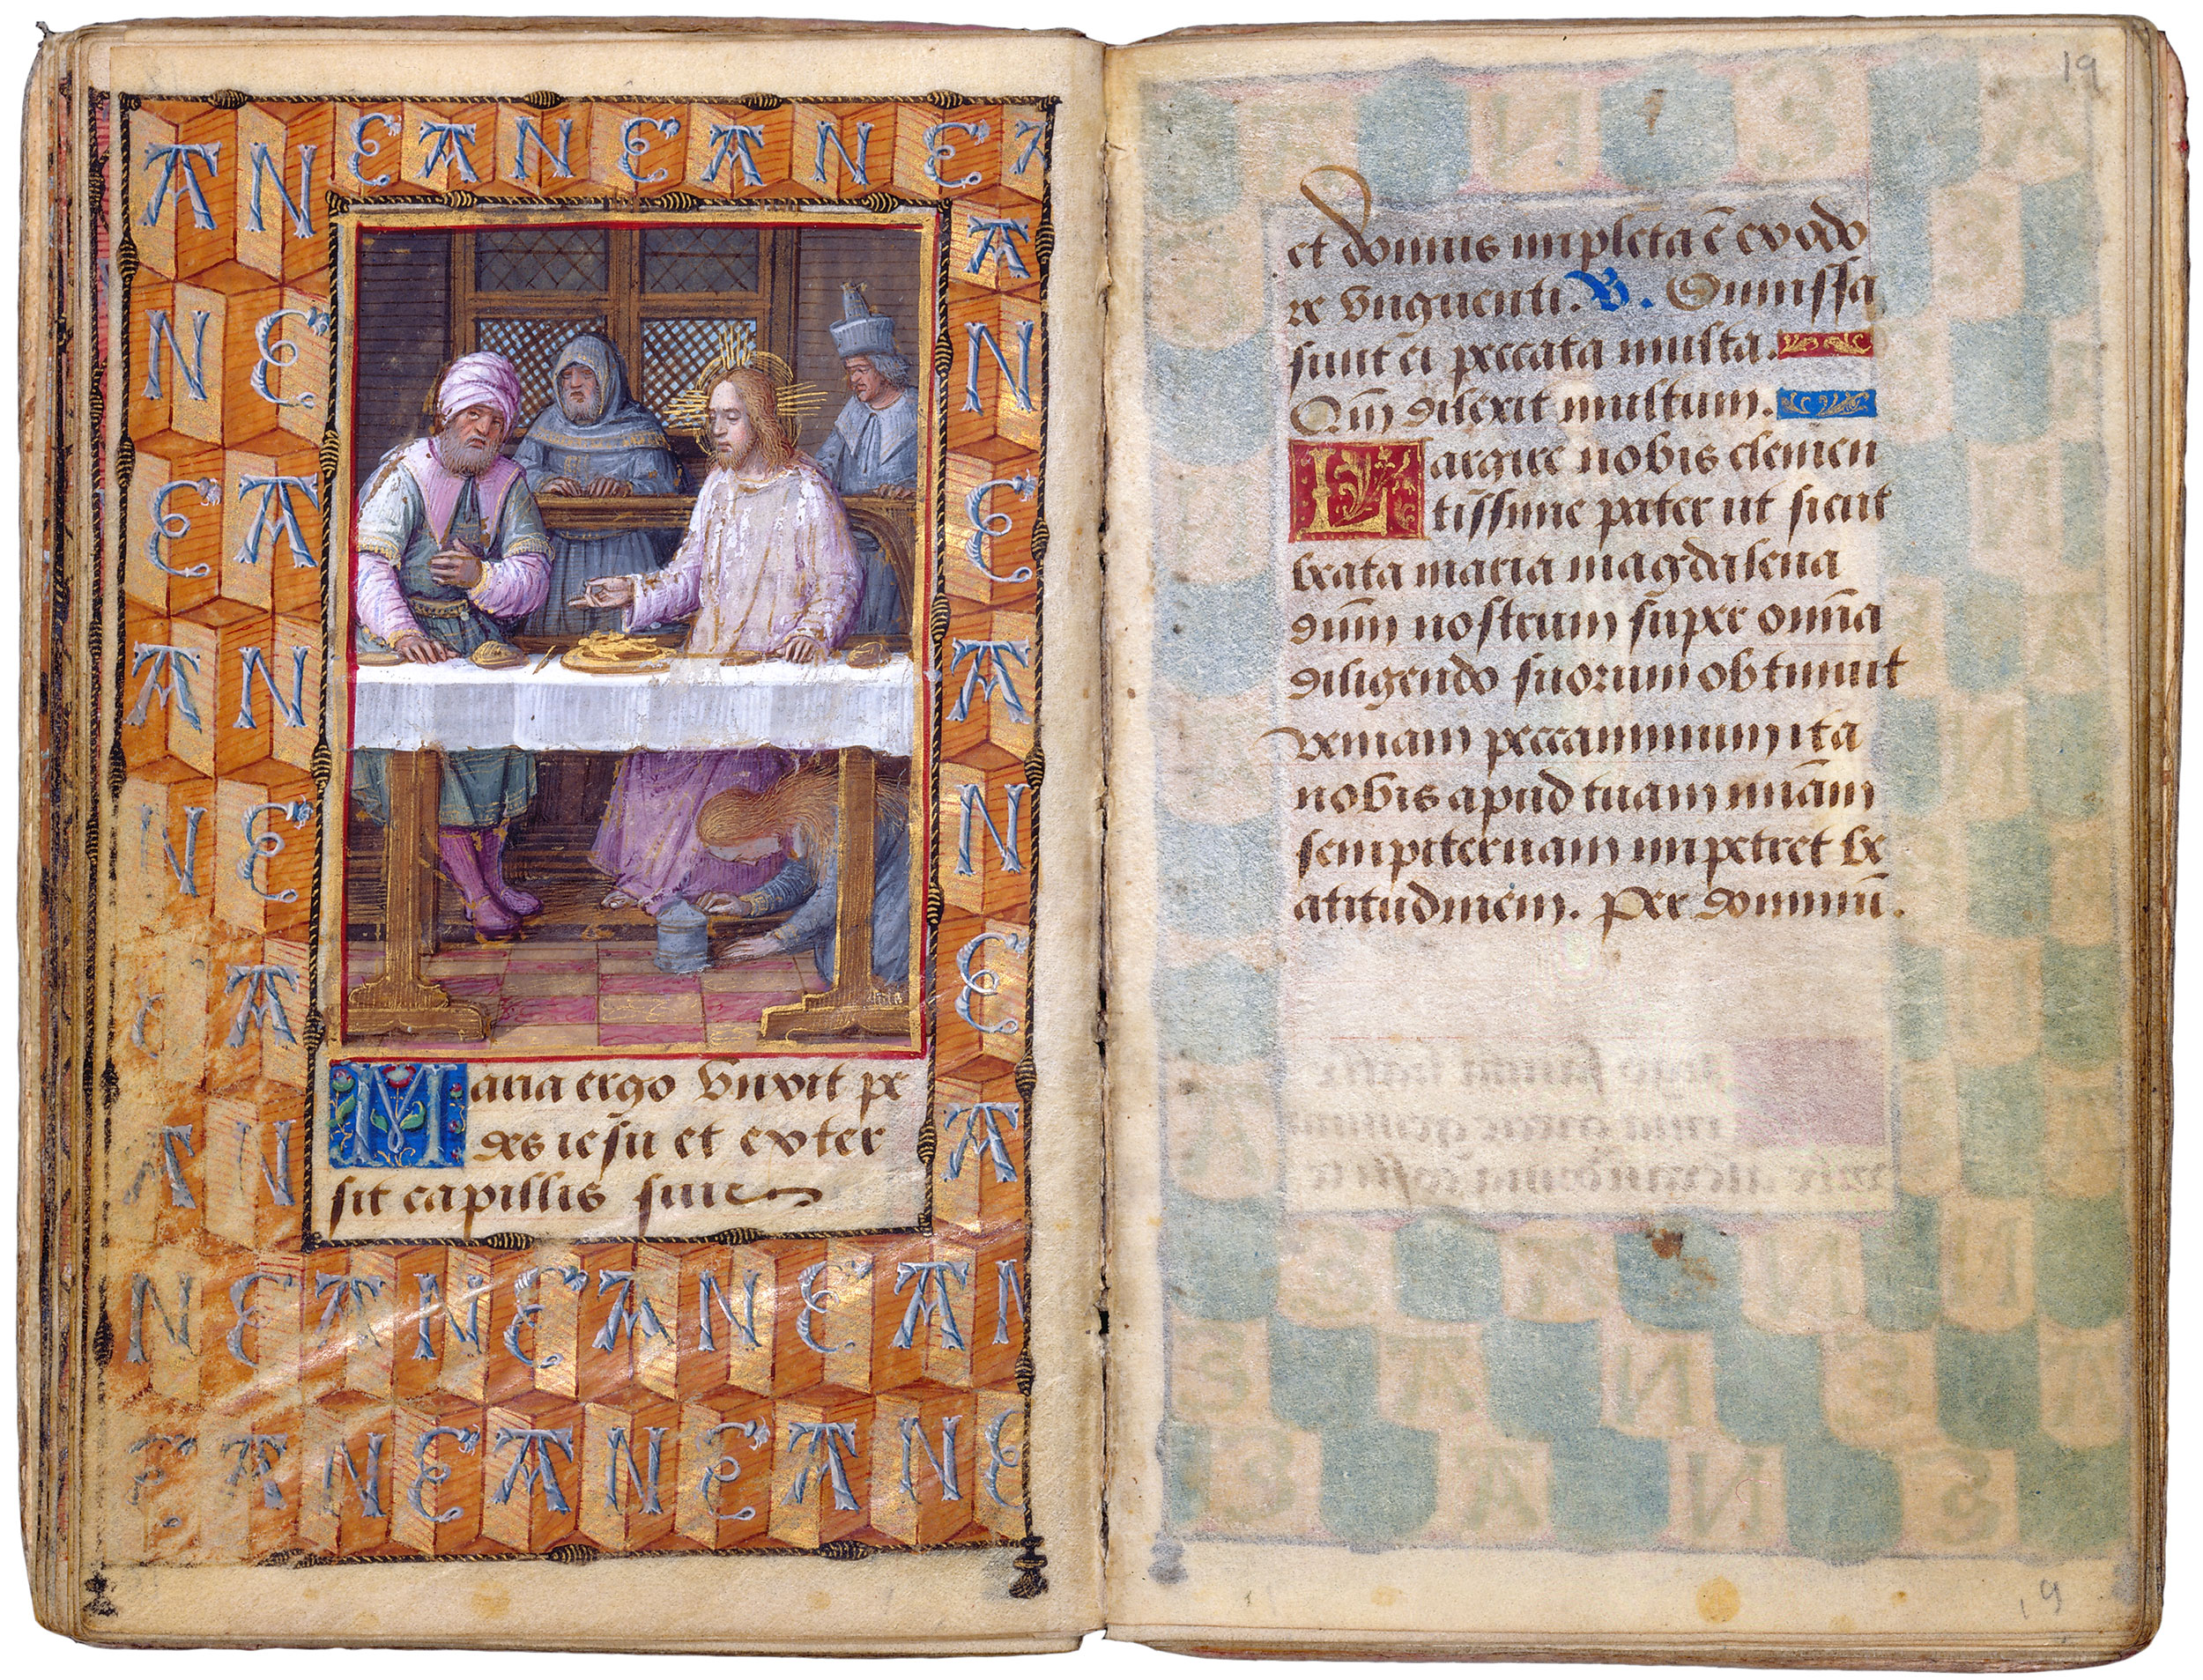 A N E A N E A N E A
N E
E A
A N
N E
E A
A N
N E A N E A N E A N
E A N E A N E A N E
A
N
E
A
N
E
A
Maria ergo vnxit pe
des iesu et exter
sit capillis suis
19
et domus impleta ē ex odo
re vnguenti. V. Dimissa
sunt ei peccata multa.
Qm̄ dilexit multum.
Largire nobis clemen
tissime pater ut sicut
beata maria magdalena
dn̄m nostrum super omīa
diligendo suorum obtinuit
veniam peccaminum ita
nobis apud tuam miām
sempiternam impetret be
atitudinem. Per dominū.
19